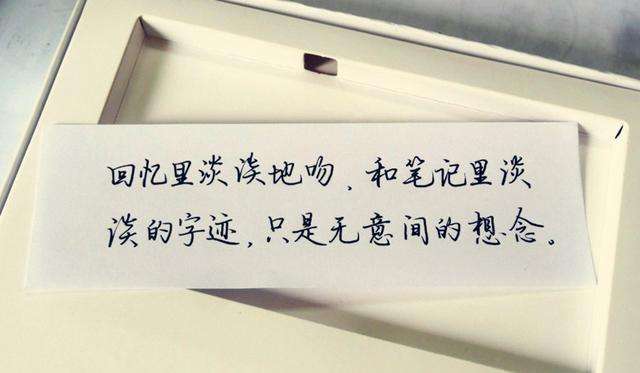 回忆里淡淡地吻，和笔记里淡
淡的字迹，只是无意间的想念。